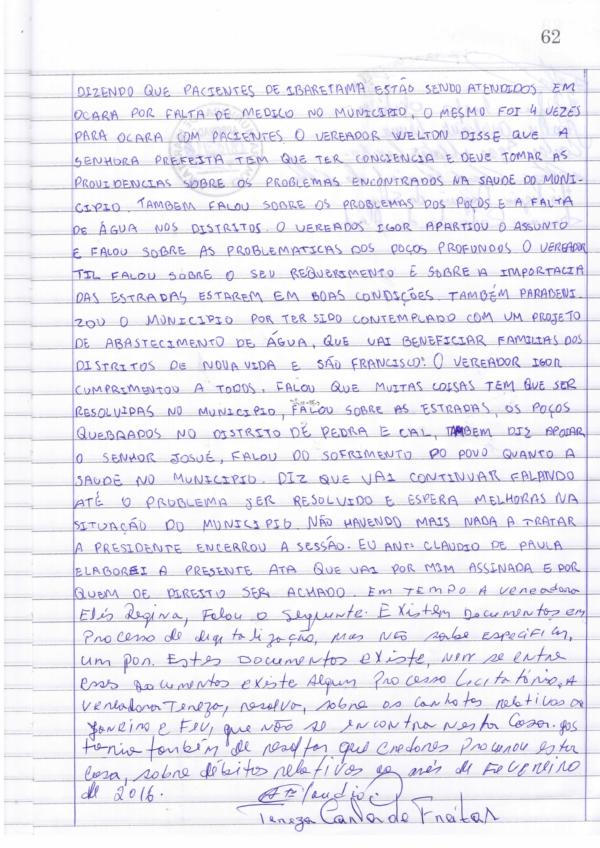 62
DIZENDO QUE PACIENTES DE IBARETAMA ESTÃO SENDO ATENDIDOS EM
OCARA POR FALTA DE MEDICO NO MUNICIPIO, O MESMO FOI 4 VEZES
PARA OCARA COM PACIENTES O VEREADOR WELTON DISSE QUE A
SENHORA PREFEITA TEM QUE TER CONCIENCIA E DEVE TOMAR AS
PROVIDENCIAS SOBRE OS PROBLEMAS ENCONTRADOS NA SAUDE DO MUNI-
CIPIO. TAMBEM FALOU SOBRE OS PROBLEMAS DOS POÇOS E A FALTA
DE ÁGUA NOS DISTRITOS. O VEREADOS IGOR APARTIOU O ASSUNTO
E FALOU SOBRE AS PROBLEMATICAS DOS POÇOS PROFUNDOS O VEREADOR
TIL FALOU SOBRE O SEU REQUERIMENTO E SOBRE A IMPORTACIA
DAS ESTRADAS ESTAREM EM BOAS CONDIÇÕES. TAMBÉM PARABENI-
ZOU O MUNICIPIO POR TER SIDO CONTEMPLADO COM UM PROJETO
DE ABASTECIMENTO DE ÁGUA, QUE VAI BENEFICIAR FAMILIAS DOS
DISTRITOS DE NOVA VIDA E SÃO FRANCISCO. O VEREADOR IGOR
CUMPRIMENTOU A TODOS. FALOU QUE MUITAS COISAS TEM QUE SER
RESOLVIDAS NO MUNICIPIO, FALOU SOBRE AS ESTRADAS, OS POÇOS
QUEBRADOS NO DISTRITO DE PEDRA E CAL, TAMBEM DIZ APOIAR
O SENHOR JOSUÉ, FALOU DO SOFRIMENTO DO POVO QUANTO A
SAUDE NO MUNICIPIO. DIZ QUE VAI CONTINUAR FALANDO
ATÉ O PROBLEMA SER RESOLVIDO E ESPERA MELHORAS NA
SITUAÇÃO DO MUNICIPIO. NÃO HAVENDO MAIS NADA A TRATAR
A PRESIDENTE ENCERROU A SESSÃO. EU ANT. CLAUDIO DE PAULA
ELABOREI A PRESENTE ATA QUE VAI POR MIM ASSINADA E POR
QUEM DE DIREITO SER ACHADO. EM TEMPO A Vereadora
Elis Regina, Falou o Seguinte. Existem Documentos em
Processo de digitalização, mas não sabe especificar,
um por. Estes Documentos existe, nem se entre
esses Documentos existe Algum Processo Licitatório, A
Vereadora Tereza, sobre os relativos a
Janeiro e Fev, que não se encontra nesta Casa.
também de que credores Procurou esta
Casa, sobre débitos relativos ao mês de Fevereiro
de 2016.
Tereza de Freitas